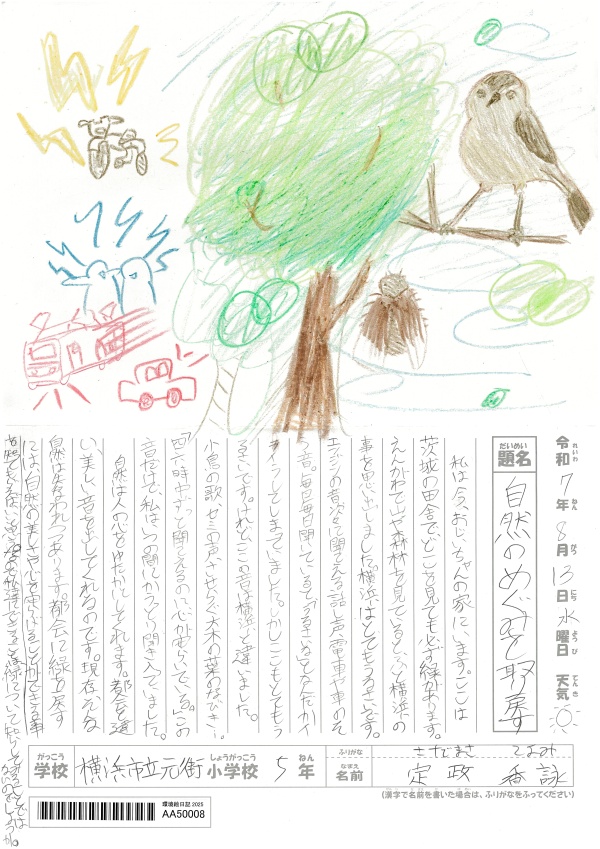 令和7年8月13日水曜日 天気
れいわ ねん がつ にち ようび てんき
だいめい
題名
自然のめぐみを取り戻す
私は今、おじいちゃんの家にいます。ここは
茨城の田舎でどこを見ても必ず緑があります。
えんがわで山や森林を見ているとふと横浜の
事を思い出しました。横浜はとてもうるさいです。
エンジンの音、次々に聞こえる話し声、電車や車のそ
う音。毎日毎日聞いていると「うるさいな」となんだかイ
ライラしてしまっていました。しかし、ここもとてもう
るさいです。けれど、ここの音は横浜と違いました。
小鳥の歌、ゼミの声、せせらぐ木の葉のなびき、
「四六時中ずっと聞こえるのに心が安らいでいる。」この
音だけで、私はいつの間にかうっとり聞き入っていました。
自然は人の心をゆたかにしてくれます。都会と違
い、美しい音を出してくれるのです。現在、そんな
自然は失なわれつつあります。都会に緑を戻す
には、自然の美しさや心を安らげることができる事
がっこう
学校
横浜市立元街
しょうがっこう
小学校
5
ねん
年
ふりがな
さだまさ
なまえ
名前
定政 香詠
(漢字で名前を書いた場合は、ふりがなをふってください)
環境絵日記 2025
AA50008